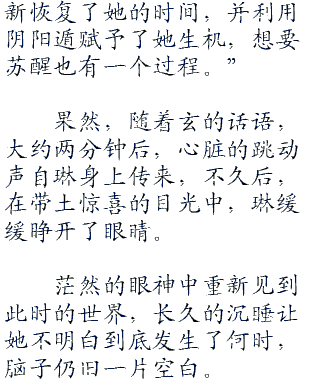 新恢复了她的时间，并利用
阴阳遁赋予了她生机，想要
苏醒也有一个过程。”
果然，随着玄的话语，
大约两分钟后，心脏的跳动
声自琳身上传来，不久后，
在带土惊喜的目光中，琳缓
缓睁开了眼睛。
茫然的眼神中重新见到
此时的世界，长久的沉睡让
她不明白到底发生了何时，
脑子仍旧一片空白。